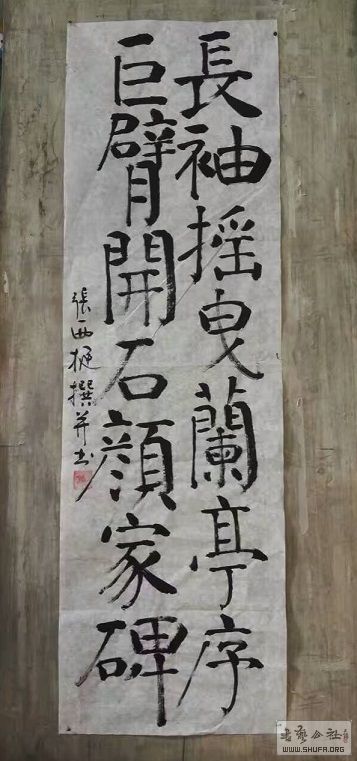 長袖摇曳蘭亭序
巨臂開石顔家碑
張西挺撰并书
书艺公社
WWW.SHUFA.ORG